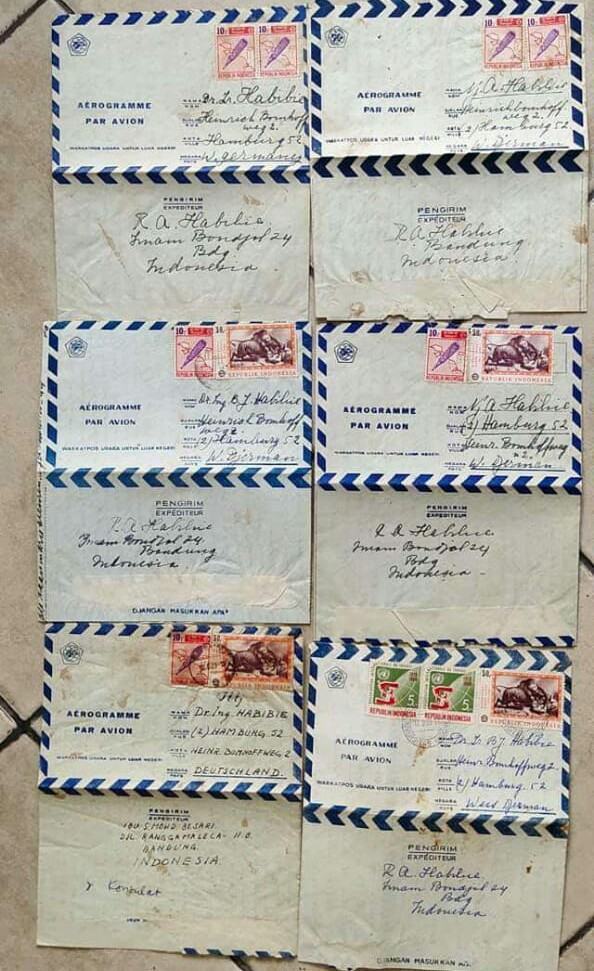 10.-
10.-
REPUBLIK INDONESIA
REPUBLIK INDONESIA
AÉROGRAMME
PAR AVION
WARKATPOS UDARA UNTUK LUAR NEGERI
NAMA
NOM
Dr. Ir. Habibie
DJALAN
RUE
Heinrich Bomhoff
weg 2.
KOTA
VILLE
Hamburg 52
NEGARA
PAYS
W. Germany
PENGIRIM
EXPÉDITEUR
R A Habibie
Imam Bondjol 24
Bdg
Indonesia
10.-
10.-
REPUBLIK INDONESIA
REPUBLIK INDONESIA
AÉROGRAMME
PAR AVION
WARKATPOS UDARA UNTUK LUAR NEGERI
A. Habibie
Heinrichbomhoff
weg 2.
2) Hamburg 52
W. Djerman
PENGIRIM
EXPÉDITEUR
R A Habibie
Bandung
Indonesia
10.-
50.-
REPUBLIK INDONESIA
AÉROGRAMME
PAR AVION
WARKATPOS UDARA UNTUK LUAR NEGERI
Dr. Ing B J. Habibie
Heinrich Bomhoff
weg 2
(2) Hamburg 52
W. Djerman
PENGIRIM
EXPÉDITEUR
R. A Habibie
Imam Bondjol 24
Bandung
Indonesia
DJANGAN MASUKKAN APA²
10.-
50.-
REPUBLIK INDONESIA
AÉROGRAMME
PAR AVION
WARKATPOS UDARA UNTUK LUAR NEGERI
A Habibie
(2) Hamburg 52
Heinr. Bomhoffweg
2.
W. Djerman
PENGIRIM
EXPÉDITEUR
R A Habibie
Imam Bondjol 24
Bdg
Indonesia
10.-
50.-
REPUBLIK INDONESIA
AÉROGRAMME
PAR AVION
WARKATPOS UDARA UNTUK LUAR NEGERI
Dr. Ing. HABIBIE
(2) HAMBURG, 52
HEINR. BOMHOFFWEG 2
DEUTSCHLAND.
PENGIRIM
EXPÉDITEUR
IBU S. MOHD BESARI
DJL. RANGGAMALELA - 11.B.
BANDUNG
INDONESIA
5
5
50.-
REPUBLIK INDONESIA
REPUBLIK INDONESIA
REPUBLIK INDONESIA
AÉROGRAMME
PAR AVION
WARKATPOS UDARA UNTUK LUAR NEGERI
Dr. Ir B J. Habibie
Heinr. Bomhoffweg 2
(2) Hamburg. 52
West Djerman
PENGIRIM
EXPÉDITEUR
R A. Habibie
Imam Bondjol 24
Bdg
Indonesia
DJANGAN MASUKKAN